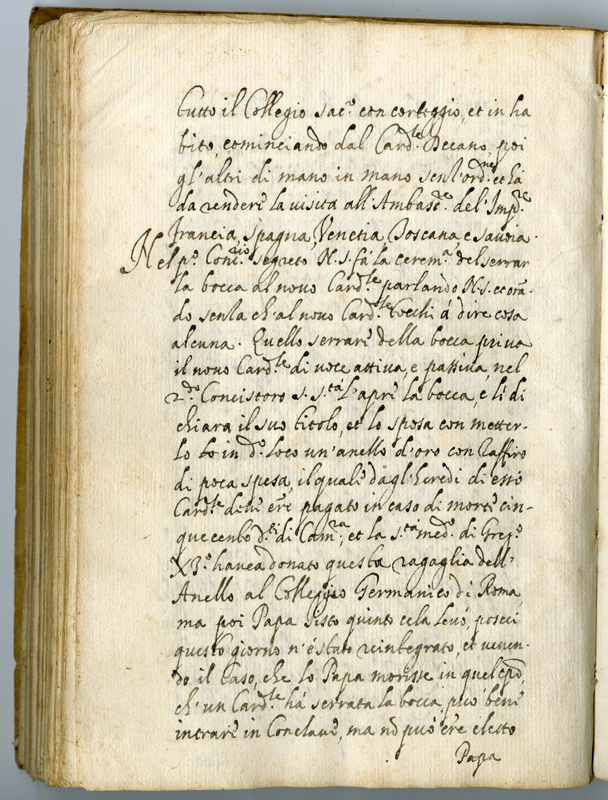 tutto il Collegio sac.º con corteggio, et in ha
bito, cominciando dal Card.le Decano, poi
gl'altri di mano in mano senz'ord.ne, et há
da rendere la visita all'Ambasc.re del'Imp.re
francia, spagna, Venetia, Toscana, e Sauoia.
Nel p.º Conc.rio segreto N. S. fá la cerem.a del serrar
la bocca al nouo Card.le parlando N. S. et oran
do senza ch'al nouo Card.le tocchi á dire cosa
alcuna. Quello serrare della bocca priua
il nouo Card.le di uoce attiua, e passiua, nel
2.do Concistoro S. S.tá l'apre la bocca, e li di
chiara il suo titolo, et lo sposa con metter-
lo in d.º loco un'anello d'oro con Zaffiro
di poca spesa, il quale dagl'heredi di essi
Card.le deue ēre pagato in caso di morte cin-
quecento d.ti di Cam.ra, et la S.ta med.º di Greg.º
X3.º hauea donato questa ragaglia dell'
Anello al Colleggio Germanico di Roma
ma poi Papa Sisto quinto cela leuó, poscei
questo giorno n'é stato reintegrato, et uenen-
do il Caso, che lo Papa morisse in quel tpō,
ch'un Card.le há serrata la bocca, puó bene
intrare in Conclaue, ma nō puó ēre eletto
Papa